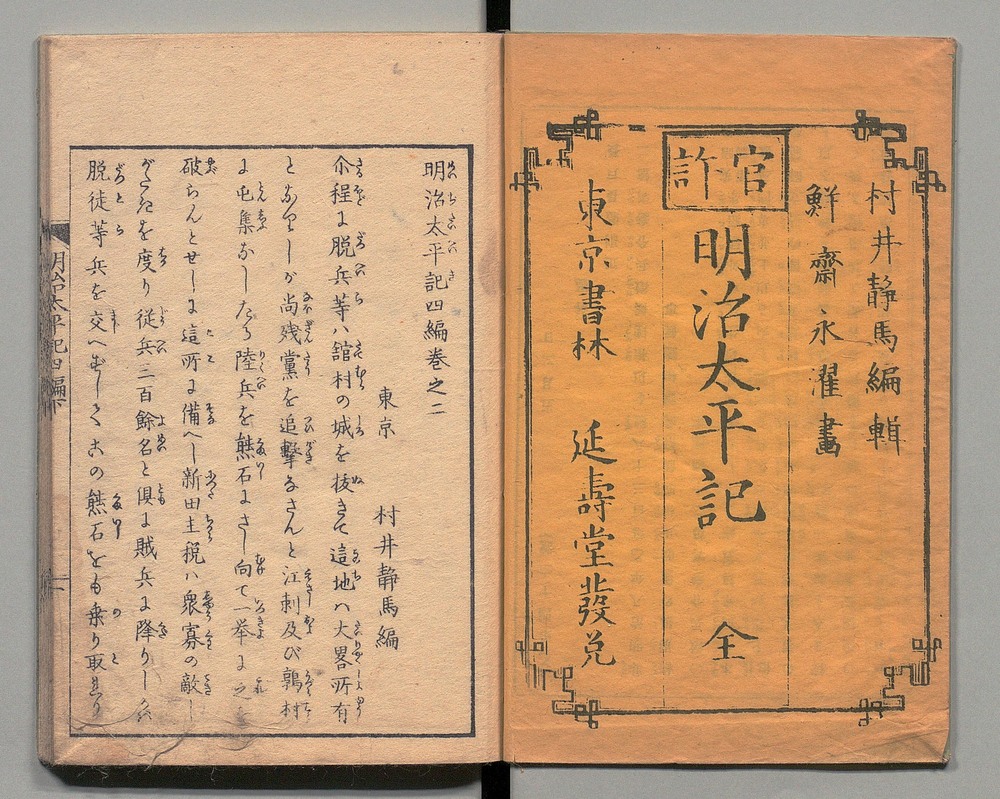 村井靜馬編輯
鮮齋永濯畫
官許
明治太平記 全
東京書林 延壽堂發兌
明治太平記四編巻之二
東京 村井静馬編
尒程に脱兵等ハ舘村の城を抜きて這地ハ大畧所有
となりしが尚残黨を追撃なさんと江刺及び鶉村
に屯集なしたる陸兵を熊石にさし向て一挙に之
破らんとせしに這所に備へし新田主税ハ衆寡の敵し
がたきを度り従兵三百餘名と倶に賊兵に降りし
脱徒等兵を交へむしてこの熊石をも乗り取
明治太平記四編下